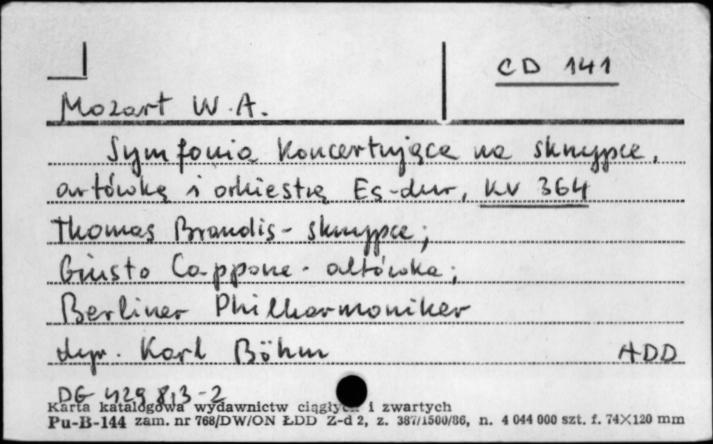 CD 141
Mozart W.A.
Symfonia koncertująca na skrzypce,
altówkę i orkiestrę Es-dur, KV 364
Thomas Brandis - skrzypce;
Giusto Cappone - altówka;
Berliner Philharmoniker
dyr. Karl Böhm ADD
DG 429 813-2
Karta katalogowa wydawnictw ciągłych i zwartych
Pu-B-144 zam. nr 768/DW/ON ŁDD Z-d 2, z. 387/1500/86, n. 4 044 000 szt. f. 74×120 mm